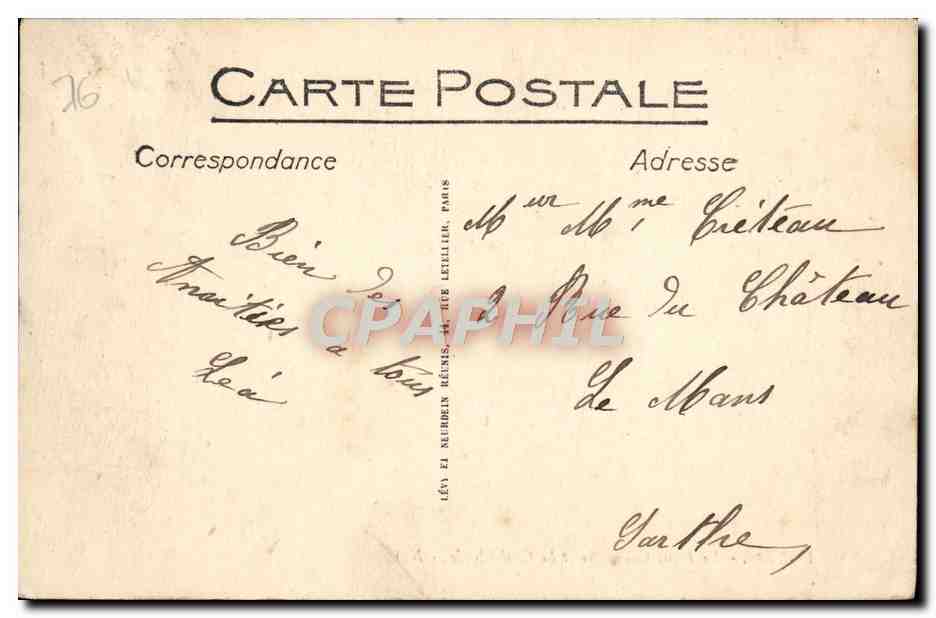 76
CARTE POSTALE
Correspondance
Adresse
Bien des
Amitiés a tous
Léa
LÉVY ET NEURDEIN RÉUNIS, 44, RUE LETELLIER, PARIS
Mur Mme Créteau
2 Rue du Château
Le Mans
Sarthe
CPAPHIL